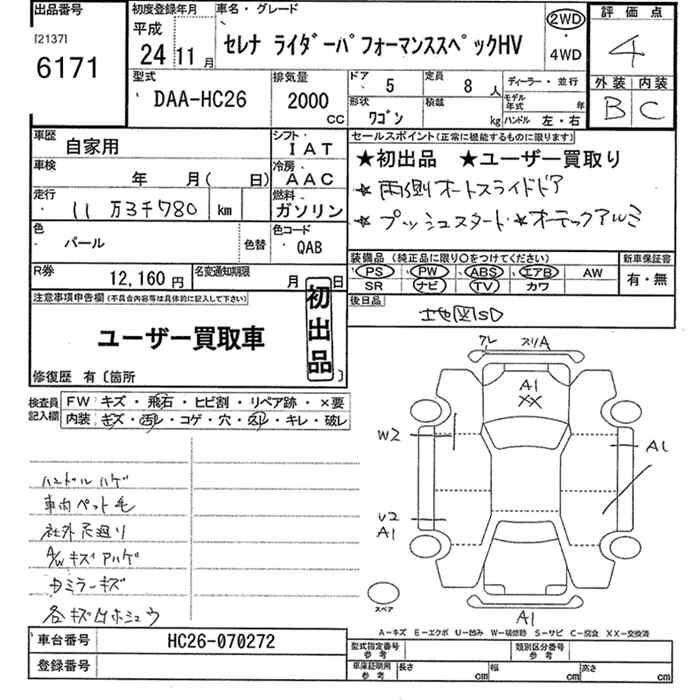 出品番号
[2137]
6171
初度登録年月
平成
24 11 月
車名・グレード
セレナ ライダーパフォーマンススペックHV
2WD
・
4WD
評価点
4
外装 内装
B C
型式
DAA-HC26
排気量
2000
CC
ドア
5
定員
8 人
形状
ワゴン
積載
kg
ディーラー・並行
モデル年式 年
ハンドル 左・右
車歴
自家用
シフト
IAT
車検
年 月( 日)
冷房
AAC
走行
11 万3千780 km
燃料
ガソリン
色
パール
色替
色コード
QAB
R券
12,160 円
名変通知期限
月 日
セールスポイント(正常に機能するものに限ります)
★初出品 ★ユーザー買取り
★両側オートスライドドア
★プッシュスタート★オーテックアルミ
装備品 (純正品に限り○をつけてください)
PS PW ABS エアB AW
SR ナビ TV カワ
新車保証書
有・無
後日品
地図SD
注意事項申告欄(不具合内容等は具体的に記入して下さい)
ユーザー買取車
初出品
修復歴 有〔箇所 〕
検査員記入欄
FW キズ・飛石・ヒビ割・リペア跡・×要
内装 キズ・汚レ・コゲ・穴・スレ・キレ・破レ
ハンドルハゲ
車内ペット毛
社外
A/Wキズアルゲ
ミラーキズ
各キズ凹ホシュウ
ワレ スリA
A1
XX
W2
A1
U2
A1
スペア
A1
A-キズ E-エクボ U-凹み W-補修跡 S-サビ C-腐食 XX-交換済
車台番号
HC26-070272
登録番号
型式指定番号
参考
類別区分番号
参考
車庫証明用
参考
長さ cm
幅 cm
高さ cm